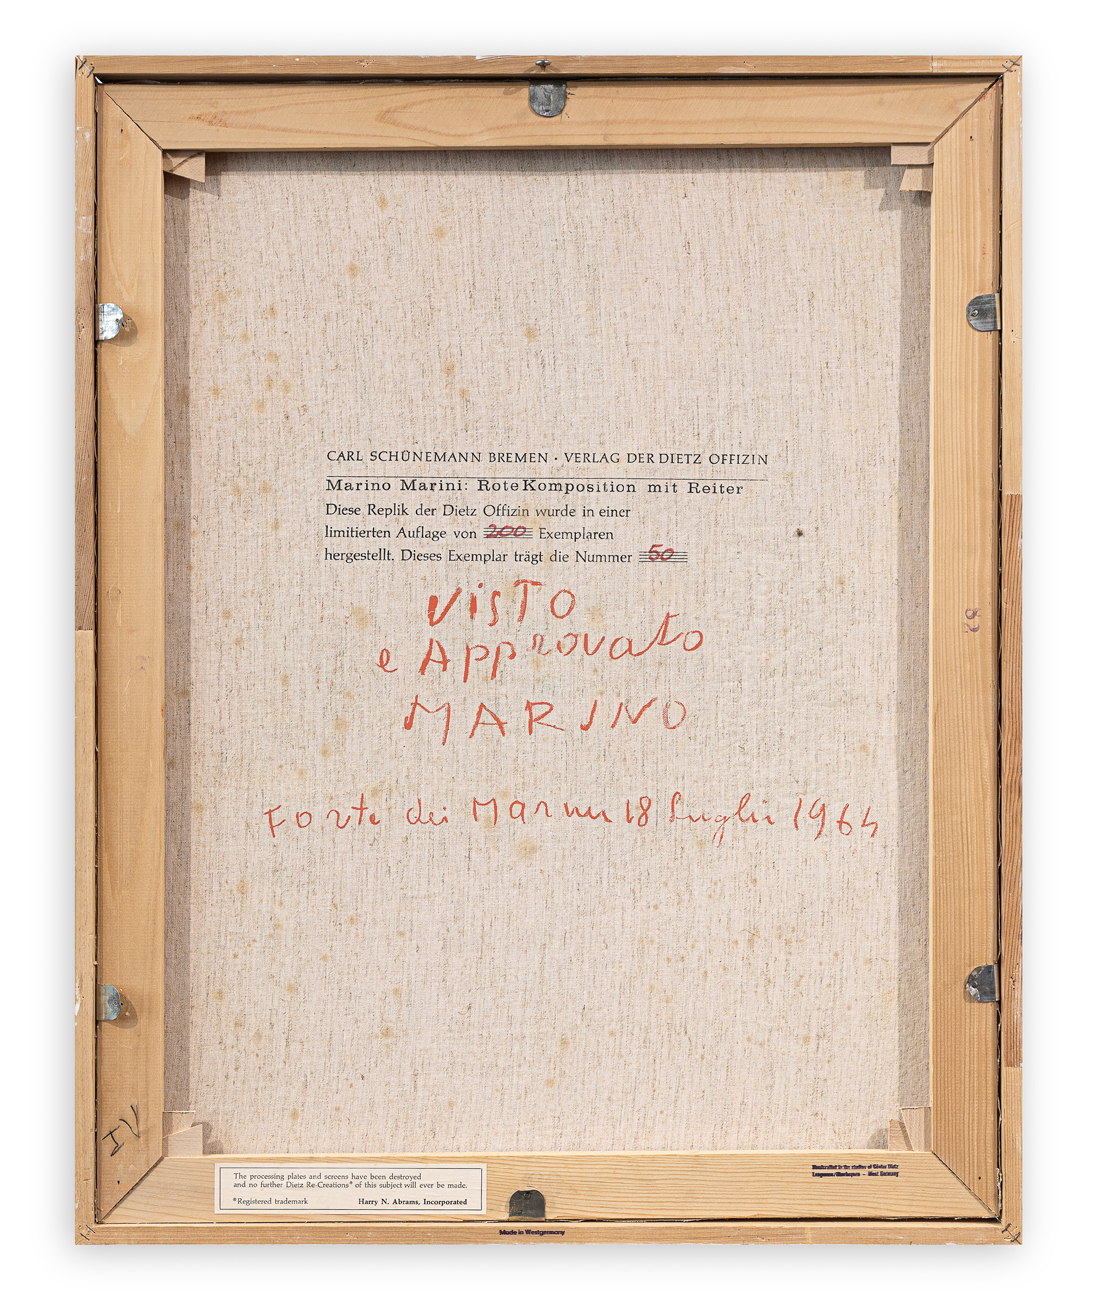 CARL SCHÜNEMANN BREMEN · VERLAG DER DIETZ OFFIZIN
Marino Marini: Rote Komposition mit Reiter
Diese Replik der Dietz Offizin wurde in einer
limitierten Auflage von 200 Exemplaren
hergestellt. Dieses Exemplar trägt die Nummer 50
VISTO
e Approvato
MARINO
Forte dei Marmi 18 Luglio 1964
82
IV
The processing plates and screens have been destroyed
and no further Dietz Re-Creations* of this subject will ever be made.
*Registered trademark Harry N. Abrams, Incorporated
Handcrafted in the studios of Günter Dietz
Lengmoos/Oberbayern – West Germany
Made in Westgermany